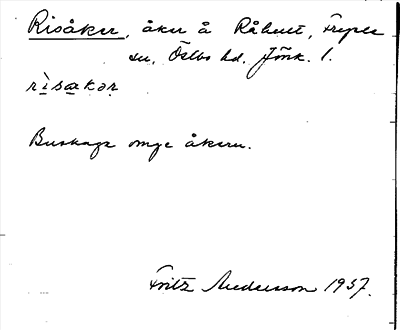 Risåker, åker å Råhult, Fryele
sn, Östbo hd. Jönk. l.
rìsakər
Buskage omge åkern.
Fritz Anderson 1937.